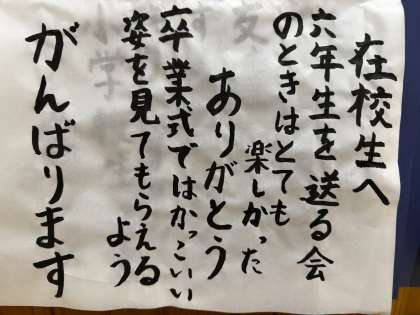 在校生へ
六年生を送る会
のときはとても
楽しかった
ありがとう
卒業式ではかっこいい
姿を見てもらえる
よう
がんばります